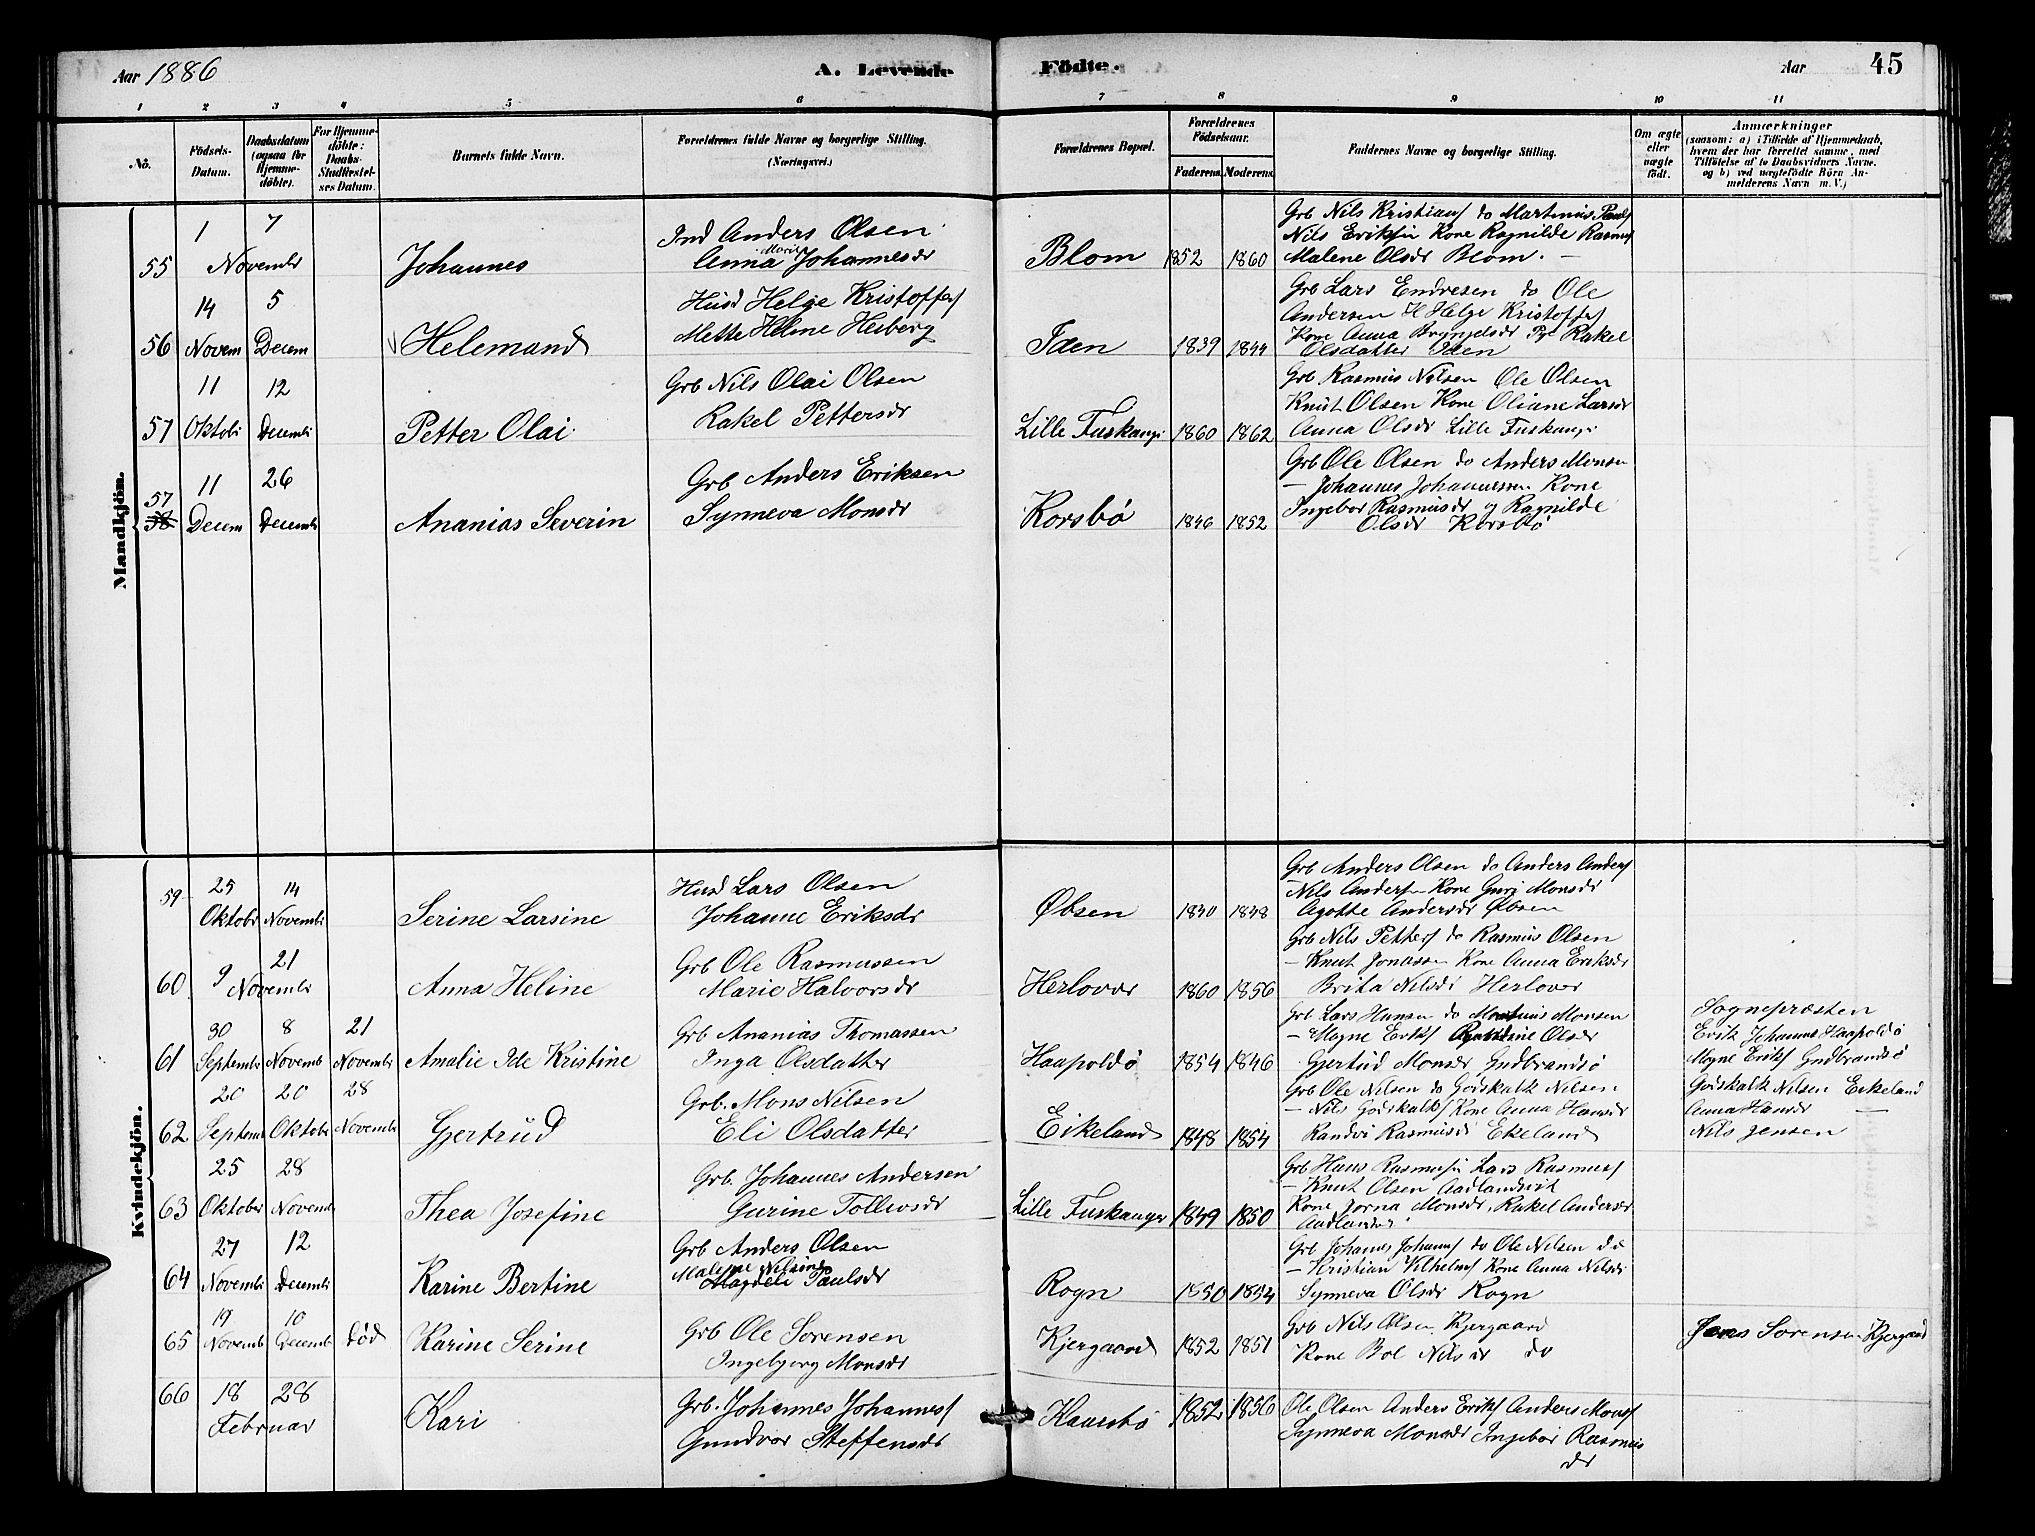 Aar 1886
A. Levende Födte.
Aar 45
1 2 3 4 5 6 7 8 9 10 11
No.
Födsels-Datum.
Daabsdatum (ogsaa for Hjemme-döbte).
For Hjemme-döbte: Daabs-Stadfæstel-ses Datum.
Barnets fulde Navn.
Forældrenes fulde Navne og borgerlige Stilling.
(Næringsvei.)
Forældrenes Bopæl.
Forældrenes Födselsaar.
Faderens. Moderens.
Faddernes Navne og borgerlige Stilling.
Om ægte eller uægte födt.
Anmærkninger
(saasom: a) i Tilfælde af Hjemmedaab,
hvem der har forrettet samme, med
Tilföielse af to Daabsvidners Navne.
og b) ved uægtefödte Börn An-
melderens Navn m. V.)
Mandkjön.
55
1 7
Novembr
Johannes
Ind Anders Olsen
Anna Marie Johannesdr
Blom
1852 1860
Grb Nils Kristians do Martinus Pauls
Nils Eriksen Kone Ragnilde Rasmus
Malene Olsdr Blom. —
56
14 5
Novem Decem
Helemand
Husd Helge Kristoffers
Mette Heline Hesberg
Iden
1839 1844
Grb Lars Endresen do Ole
Andersen H Helge Kristoffers
Kone Anna Pge Rakel
Olsdatter Iden
57
11 12
Oktobr Decembr
Petter Olai
Grb Nils Olai Olsen
Rakel Pettersdr
Lille Fuskangr
1860 1862
Grb Rasmus Nilsen Ole Olsen
Knut Olsen Kone Oliane Larsdr
Anna Olsdr Lille Fuskangr
57
58
11 26
Decem Decembr
Ananias Severin
Grb Anders Eriksen
Synneva Monsdr
Korsbö
1846 1852
Grb Ole Olsen do Anders Monsen
— Johannes Johannessen Kone
Ingebor Rasmusdr og Ragnilde
Olsdr Korsbö
Kvindekjön.
59
25 14
Oktobr Novembr
Serine Larsine
Husd Lars Olsen
Johanne Eriksdr
Øbsen
1840 1848
Grb Anders Olsen do Anders Anders
— Nils Andersen Kone Guri Monsdr
Agotte Andersdr Øbsen
60
9 21
Novembr
Anna Heline
Grb Ole Rasmussen
Marie Halvorsdr
Herlover
1860 1856
Grb Nils Petters do Rasmus Olsen
— Knut Jonassen Kone Anna Eriksdr
Brita Nilsdr Herlover
61
30 8 21
Septembr Novemb Novembr
Amalie Ide Kristine
Grb Ananias Thomassen
Inga Olsdatter
Haapoldö
1854 1846
Grb Lars Hansen do Martinus Monsen
— Mogne Eriks Olsdr
Gjertud Monsdr Gudbrandsö
Sognepræsten
Erik Johannes Haapoldö
Mogne Eriks Gudbrandsö
62
20 20 28
Septemb Oktobr Novembr
Gjertrud
Grb. Mons Nilsen
Eli Olsdatter
Eikeland
1848 1854
Grb Ole Nilsen do Godskalk Nilsen
— Nils Godskalks Kone Anna Hansdr
Randvi Rasmusdr Ekeland
Godskalk Nilsen Eikeland
Anna Hansdr —
Nils Jensen
63
25 28
Oktober Novembr
Thea Josefine
Grb. Johannes Andersen
Gurine Tollevsdr
Lille Fuskanger
1849 1850
Grb Hans Rasmussen Lars Rasmuss
— Knut Olsen Aadlandsvik
Kone Jorna Monsdr, Rakel Andersdr
Aadlandsv
64
27 12
Novembr Decembr
Karine Bertine
Grb Anders Olsen
Malene Nilsine
Magdeli Paulsdr
Rogn
1850 1854
Grb Johanes Johanns do Ole Nilsen do
— Kristian Vilhelms Kone Anna Nilsdr
Synneva Olsdr Rogn
65
19 10
Novembr Decembr Död
Karine Serine
Grb Ole Sorensen
Ingebjorg Monsdr
Kjergaard
1852 1851
Grb Nils Olsen Kjergaard
Kone Bol Nilsdr do
Jens Sorensen Kjergaard
66
18 28
Februar
Kari
Grb. Johannes Johannes
Gundvor Steffensdr
Kaursbö
1852 1856
Ole Olsen Anders Eriks Anders Mons
Synneva Monsdr Ingebor Rasmus
dr